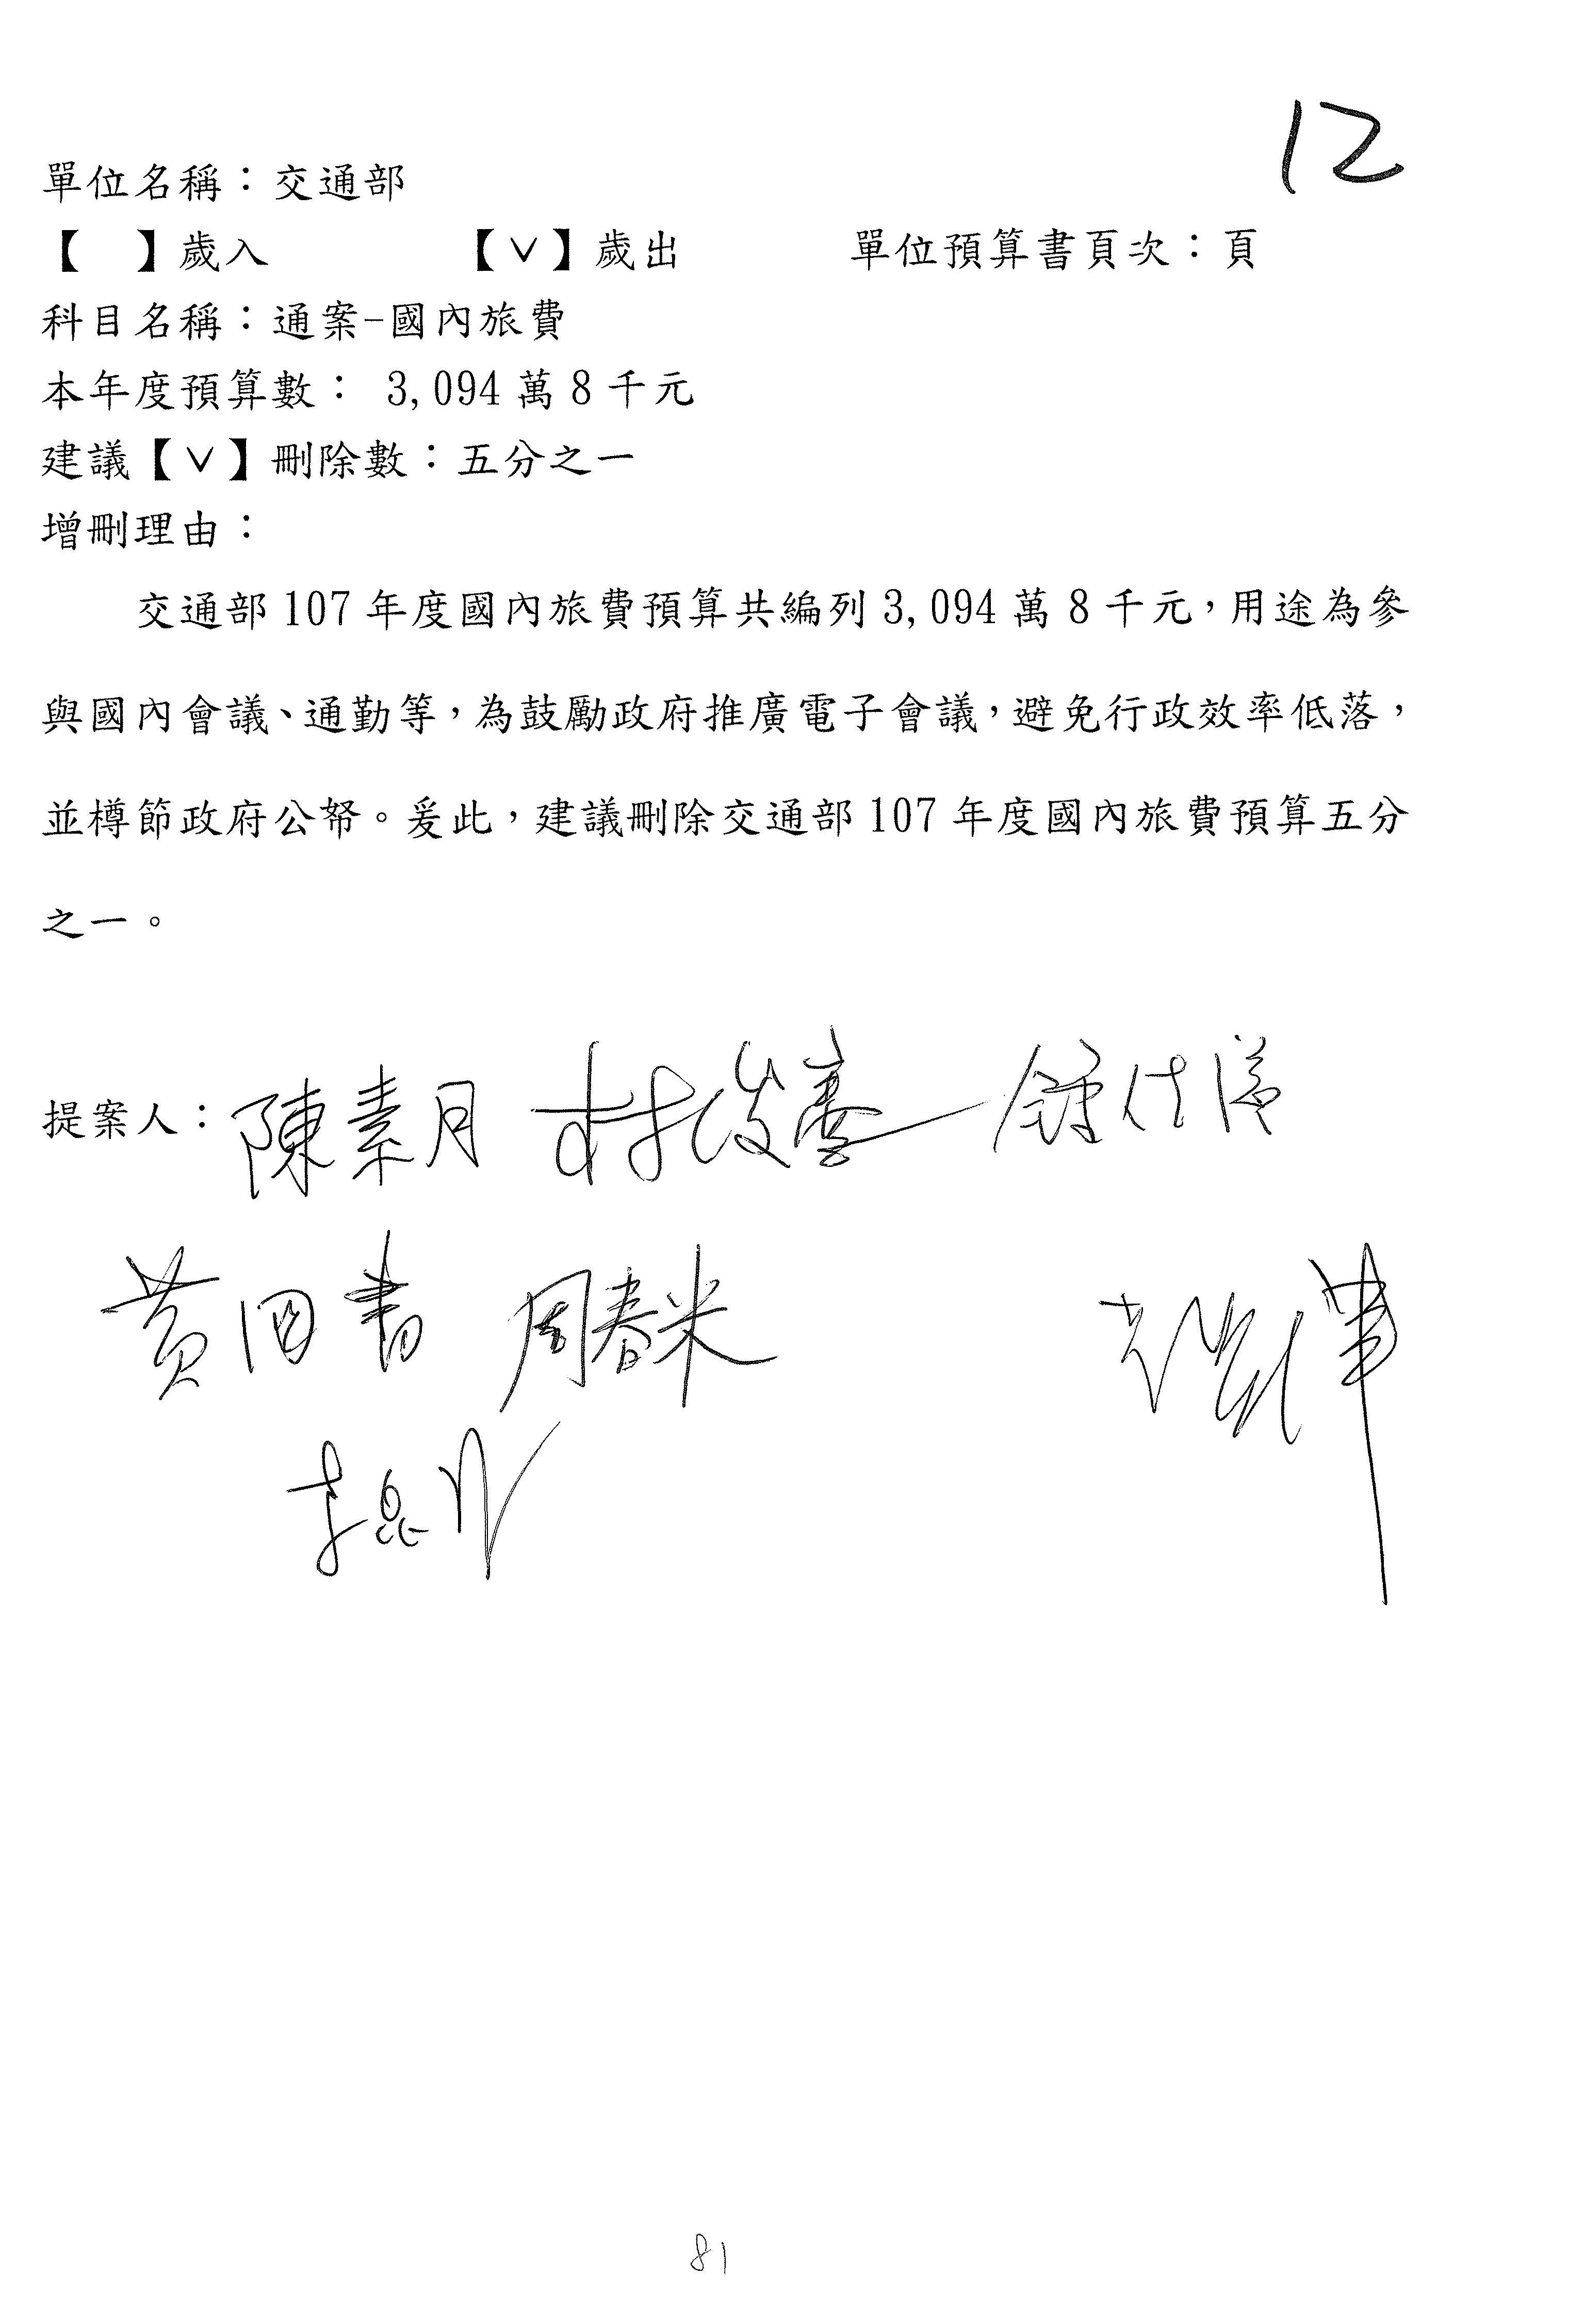 12
單位名稱：交通部
【　】歲入　【∨】歲出　單位預算書頁次：頁
科目名稱：通案-國內旅費
本年度預算數： 3,094 萬 8 千元
建議【∨】刪除數：五分之一
增刪理由：
交通部 107 年度國內旅費預算共編列 3,094 萬 8 千元，用途為參
與國內會議、通勤等，為鼓勵政府推廣電子會議，避免行政效率低落，
並樽節政府公帑。爰此，建議刪除交通部 107 年度國內旅費預算五分
之一。
提案人：陳素月 林俊憲
黃國書 周春米
81